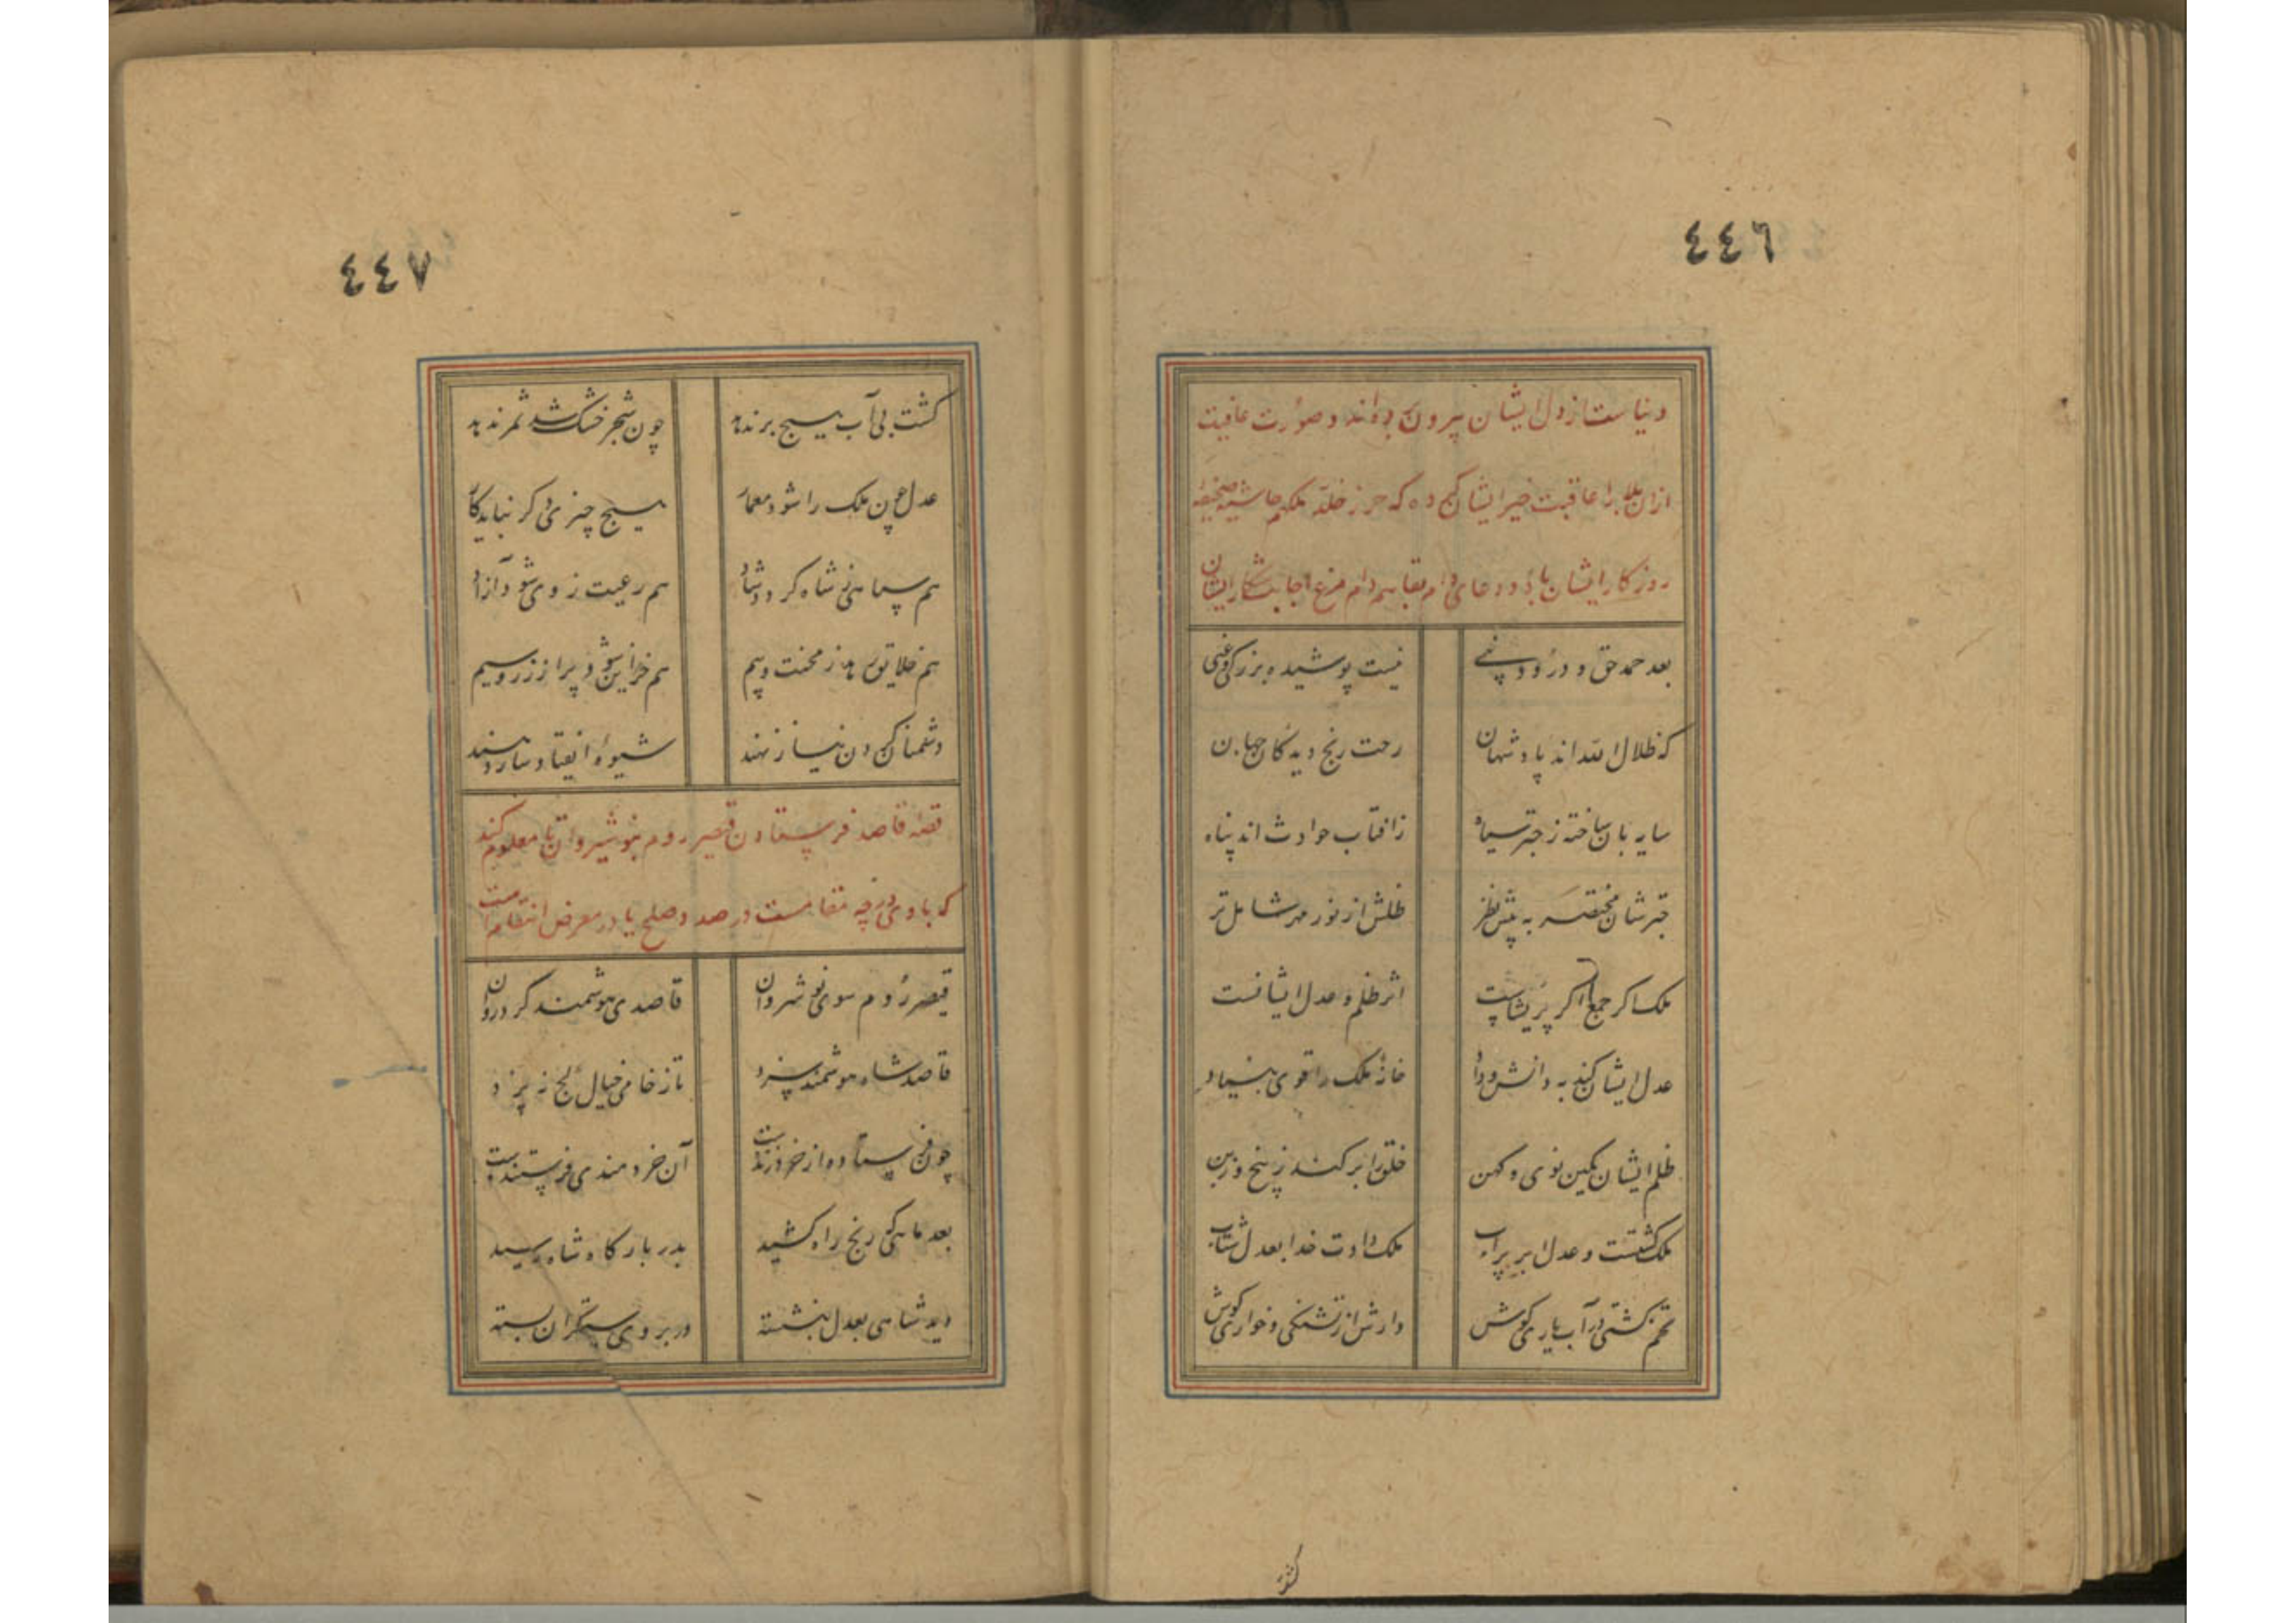 ٤٤٦
دنیاست از دل ایشان بیرون برده‌اند و صورت عاقبت
ازان بلا را عاقبت خیر ایشان کرده که حرز خلد ملکهم حاشیه صحیفه
روزکار ایشان باد و دعای دام بقاهم دام مرغ اجابت شکار ایشان
بعد حمد حق و درود نبی نیست پوشیده بر زکی و غبی
که ظلال الله اند پادشهان رحت رنج دیدکان جهان
سایه بان ساخته ز چتر سیاه ز افتاب حوادث اند پناه
چترشان مختصر به پیش نظر ظلش از نور مهر شامل تر
ملک اکر جمع اکر پریشانست اثر ظلم و عدل ایشانست
عدل ایشان کند به دانش و داد خانهٔ ملک را قوی بنیاد
ظلم ایشان مکین نوی و کهن خلق را بر کند ز بیخ و ز بن
ملک کشتست و عدل ابر پرآب ملک دادت خدا بعدل شتاب
تخم کشتی در آب یاری کوش دارش از تشنکی و خواری کوش
کشت
٤٤٧
کشت بی آب هیچ بر ندهد چون شجر خشک شد ثمر ندهد
عدل چون ملک را شود معمار هیچ چیزی دکر نیاید کار
هم سپاهی ز شاه کردد شاد هم رعیت ز وی شود آزاد
هم خلایق رهد ز محنت و بیم هم خزاین شود پر از زر و سیم
دشمنان کردن نیاز نهند شیوهٔ انقیاد ساز دهند
قصه قاصد فرستادن قیصر روم بنوشیروان تا معلوم کند
که با وی در چه مقامست در صدد صلح یا در معرض انتقام است
قیصر روم سوی نوشروان قاصدی هوشمند کرد روان
قاصد شاه هوشمند سزد تا ز خامی خیال کج نپزد
چون فرستاده از خرد زندست آن خردمندی فرستندست
بعد ماهی که رنج راه کشید بدر بارکاه شاه رسید
دید شاهی بعدل بنشسته در بروی ستمکران بسته